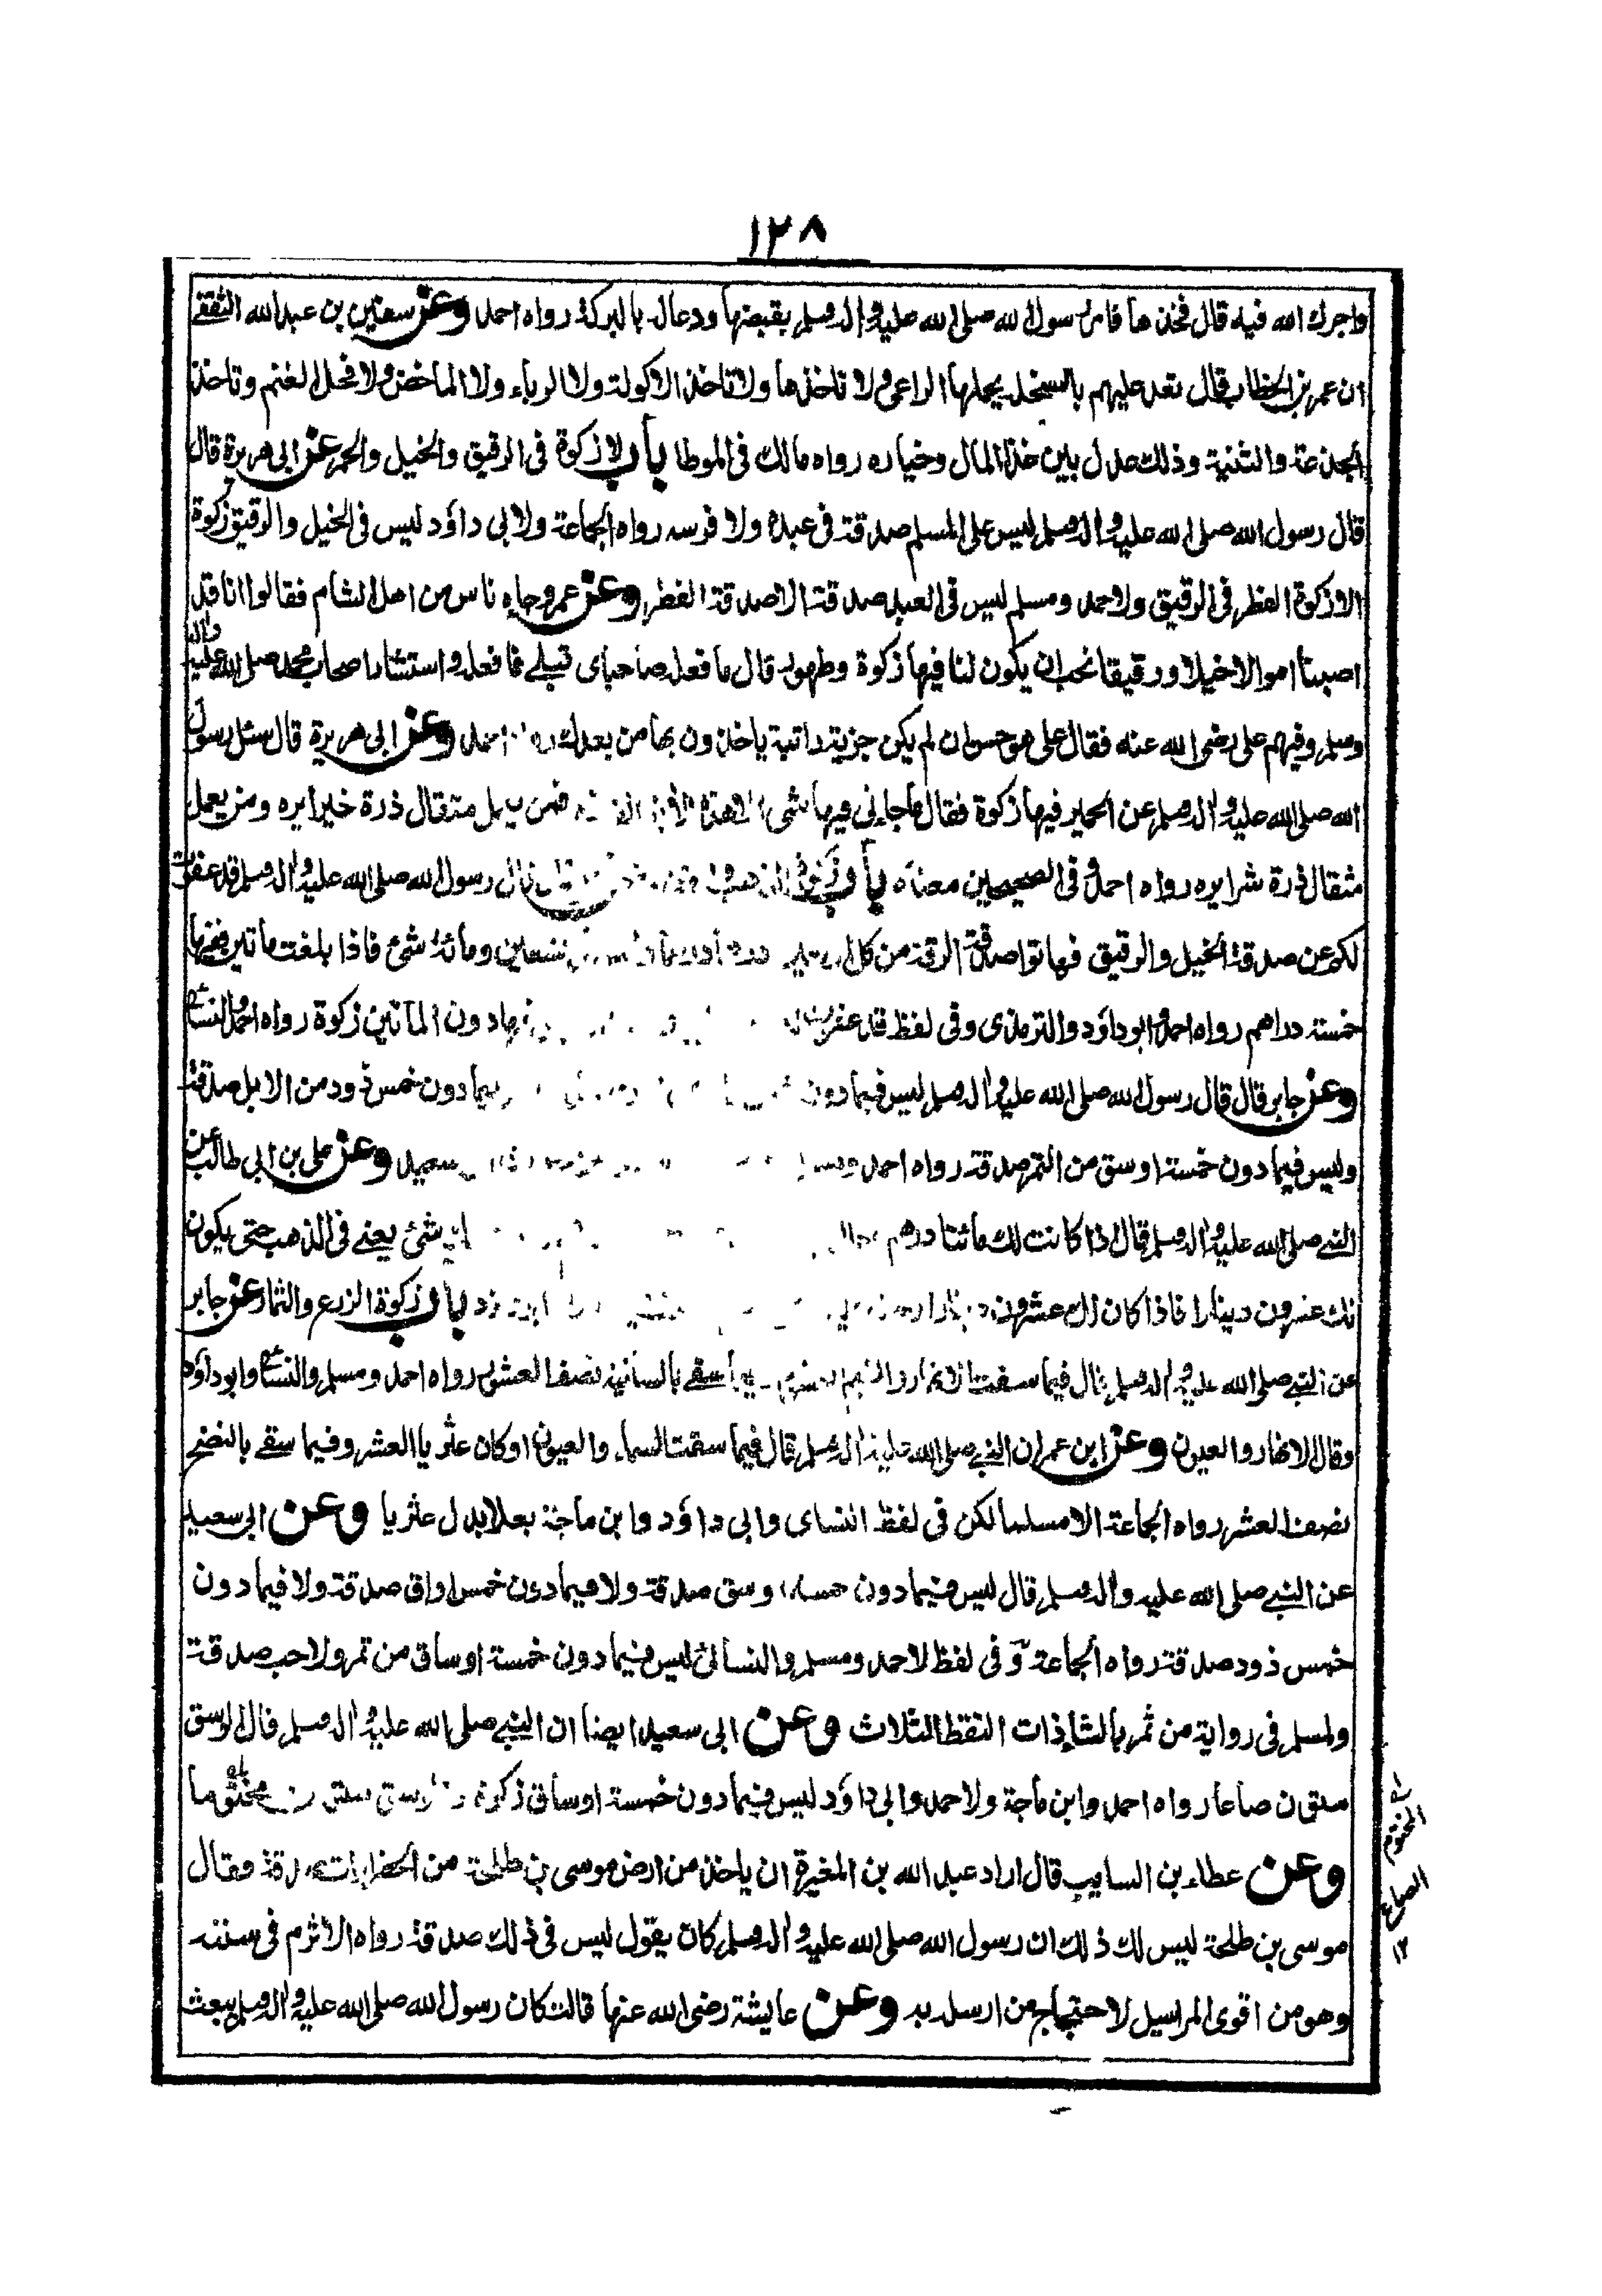 ١٢٨
واجرك الله فيه قال فخذها فامر رسول الله صلى الله عليه واله وسلم بقبضها ودعا له بالبركة رواه احمد وعن سفين بن عبد الله الثقفي
ان عمر بن الخطاب قال تعد عليهم بالسخلة يحملها الراعي ولا تاخذها ولا تاخذ الاكولة ولا الرباء ولا الماخض ولا فحل الغنم وتاخذ
الجذعة والثنية وذلك عدل بين غذا المال وخياره رواه مالك في الموطا باب لا زكوة في الرقيق والخيل والحمر عن ابي هريرة قال
قال رسول الله صلى الله عليه واله وسلم ليس على المسلم صدقة في عبده ولا فرسه رواه الجماعة ولابي داؤد ليس في الخيل والرقيق زكوة
الا زكوة الفطر في الرقيق ولاحمد ومسلم ليس في العبد صدقة الا صدقة الفطر وعن عمر وجاءه ناس من اهل الشام فقالوا انا قد
اصبنا اموالا خيلا ورقيقا نحب ان يكون لنا فيها زكوة وطهور قال ما فعله صاحباي قبلي فافعله واستشار اصحاب محمد صلى الله عليه واله
وسلم وفيهم علي رضي الله عنه فقال علي هو حسن ان لم يكن جزية راتبة ياخذون بها من بعدك رواه احمد وعن ابي هريرة قال سئل رسول
الله صلى الله عليه واله وسلم عن الحمير فيها زكوة فقال ما جاءني فيها شيء الا هذه الاية الفذة فمن يعمل مثقال ذرة خيرا يره ومن يعمل
مثقال ذرة شرا يره رواه احمد وفي الصحيحين معناه باب زكوة الذهب و قال قال رسول الله صلى الله عليه واله وسلم قد عفوت
لكم عن صدقة الخيل والرقيق فهاتوا صدقة الرقة من كل اربعين درهما تسعين ومائة شيء فاذا بلغت مأتين ففيها
خمسة دراهم رواه احمد وابو داؤد والترمذي وفي لفظ قد عفوت فيما دون المأتين زكوة رواه احمد والنسائي
وعن جابر قال قال رسول الله صلى الله عليه واله وسلم ليس فيما دون فيما دون خمس ذود من الابل صدقة
وليس فيما دون خمسة اوسق من التمر صدقة رواه احمد ومسلم سعيد وعن علي بن ابي طالب عن
النبي صلى الله عليه واله وسلم قال اذا كانت لك مائتا درهم شيء يعني في الذهب حتى يكون
لك عشرون دينارا فاذا كان لك عشرون دينارا باب زكوة الزرع والثمار عن جابر
عن النبي صلى الله عليه واله وسلم قال فيما سقت الانهار والغيم العشور وفيما سقي بالسانية نصف العشور رواه احمد ومسلم والنسائي وابو داؤد
وقال الانهار والعيون وعن ابن عمر ان النبي صلى الله عليه واله وسلم قال فيما سقت السماء والعيون او كان عثريا العشر وفيما سقي بالنضح
نصف العشر رواه الجماعة الا مسلما لكن في لفظ النساي وابي داؤد وابن ماجة بعلا بدل عثريا وعن ابي سعيد
عن النبي صلى الله عليه واله وسلم قال ليس فيما دون خمسة اوسق صدقة ولا فيما دون خمس اواق صدقة ولا فيما دون
خمس ذود صدقة رواه الجماعة وفي لفظ لاحمد ومسلم والنسائي ليس فيما دون خمسة اوساق من تمر ولا حب صدقة
ولمسلم في رواية من ثمر بالثاء ذات النقط الثلاث وعن ابي سعيد ايضا ان النبي صلى الله عليه واله وسلم قال الوسق
ستون صاعا رواه احمد وابن ماجة ولاحمد وابي داؤد ليس فيما دون خمسة اوساق زكوة والوسق ستون مختوما
وعن عطاء بن السايب قال اراد عبد الله بن المغيرة ان ياخذ من ارض موسى بن طلحة من الخضراوات صدقة فقال
موسى بن طلحة ليس لك ذلك ان رسول الله صلى الله عليه واله وسلم كان يقول ليس في ذلك صدقة رواه الاثرم في سننه
وهو من اقوى المراسيل لاحتجاج من ارسله به وعن عايشة رضي الله عنها قالت كان رسول الله صلى الله عليه واله وسلم يبعث
المختوم
الصاع
١٢